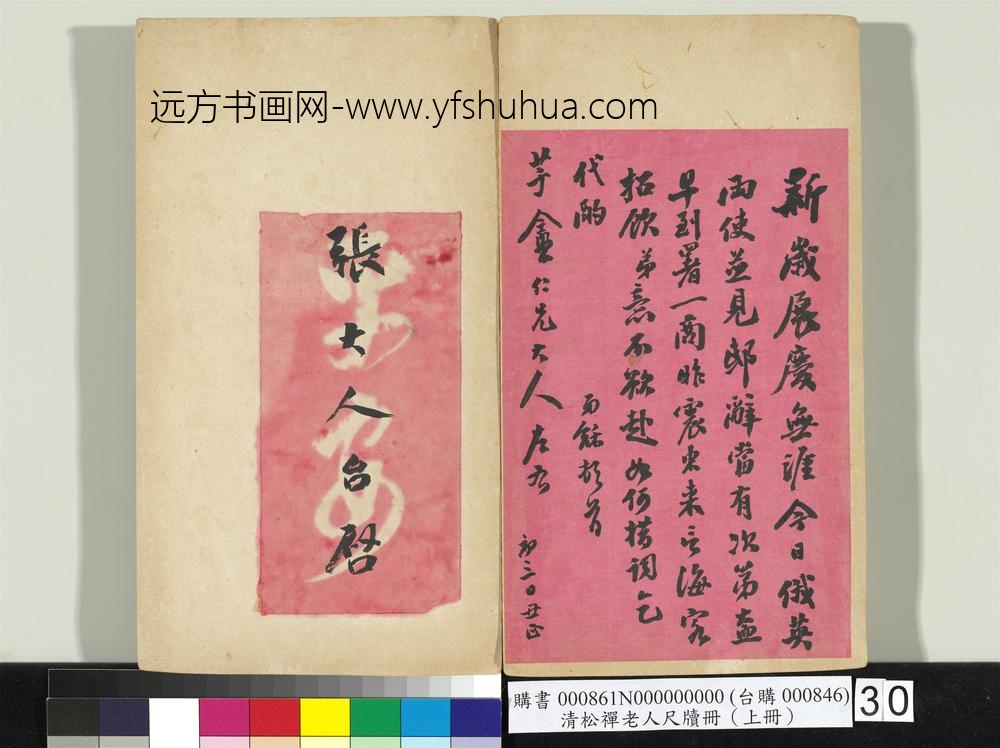 远方书画网-www.yfshuhua.com
新歲展慶無涯今日俄英
兩使並見邸辭當有次第盍
早到署一商昨震東来言海客
招飲弟意不欲赴如何措詞乞
代酌
樵野仁兄大人左右
弟龢頓首
初三日丑正
張大人台啓
購書 000861N000000000 (台購 000846)
清松禪老人尺牘冊（上冊）
30